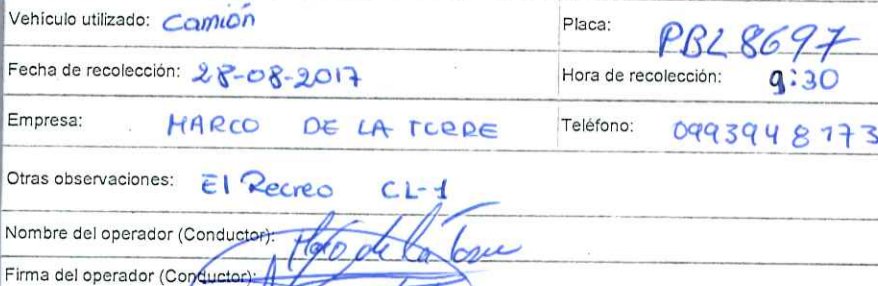 Vehículo utilizado: Camión Placa: PBL8697
Fecha de recolección: 28-08-2017 Hora de recolección: 9:30
Empresa: MARCO DE LA TORRE Teléfono: 0993948173
Otras observaciones: El Recreo CL-1
Nombre del operador (Conductor): de la Torre
Firma del operador (Conductor):